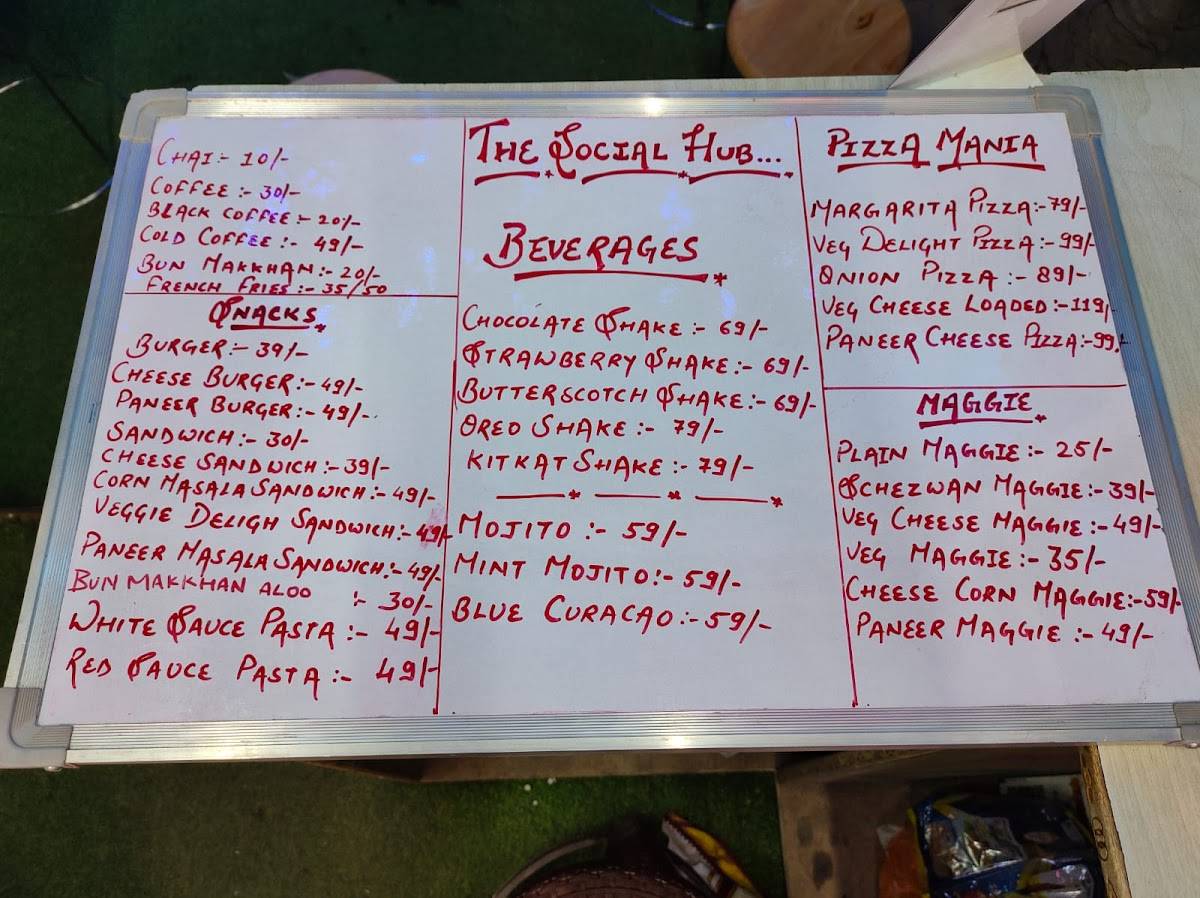 CHAI:- 10/-
COFFEE:- 30/-
BLACK COFFEE:- 20/-
COLD COFFEE:- 49/-
BUN MAKKHAN:- 20/-
FRENCH FRIES:- 35/50
SNACKS
BURGER:- 39/-
CHEESE BURGER:- 49/-
PANEER BURGER:- 49/-
SANDWICH:- 30/-
CHEESE SANDWICH:- 39/-
CORN MASALA SANDWICH:- 49/-
VEGGIE DELIGH SANDWICH:- 49/-
PANEER MASALA SANDWICH:- 49/-
BUN MAKKHAN ALOO :- 30/-
WHITE SAUCE PASTA:- 49/-
RED SAUCE PASTA:- 49/-
THE SOCIAL HUB...
BEVERAGES
CHOCOLATE SHAKE:- 69/-
STRAWBERRY SHAKE:- 69/-
BUTTERSCOTCH SHAKE:- 69/-
OREO SHAKE:- 79/-
KITKAT SHAKE:- 79/-
MOJITO:- 59/-
MINT MOJITO:- 59/-
BLUE CURACAO:- 59/-
PIZZA MANIA
MARGARITA PIZZA:- 79/-
VEG DELIGHT PIZZA:- 99/-
ONION PIZZA:- 89/-
VEG CHEESE LOADED:- 119/-
PANEER CHEESE PIZZA:- 99/-
MAGGIE
PLAIN MAGGIE:- 25/-
SCHEZWAN MAGGIE:- 39/-
VEG CHEESE MAGGIE:- 49/-
VEG MAGGIE:- 35/-
CHEESE CORN MAGGIE:- 59/-
PANEER MAGGIE:- 49/-